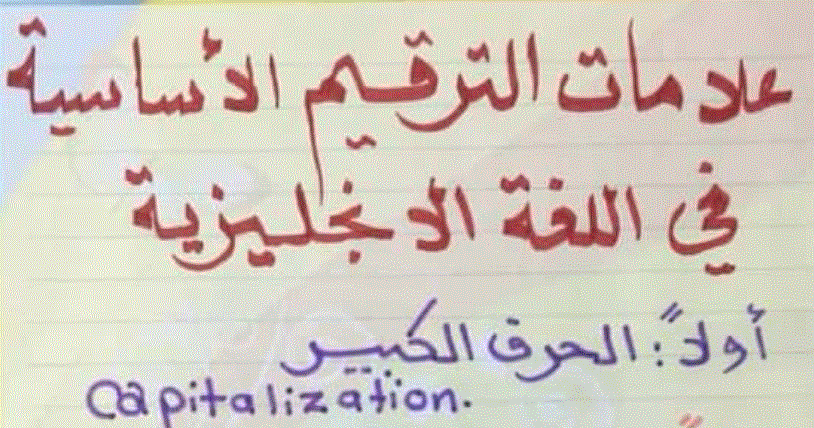 علامات الترقيم الأساسية
في اللغة الانجليزية
أولاً: الحرف الكبير
Capitalization.